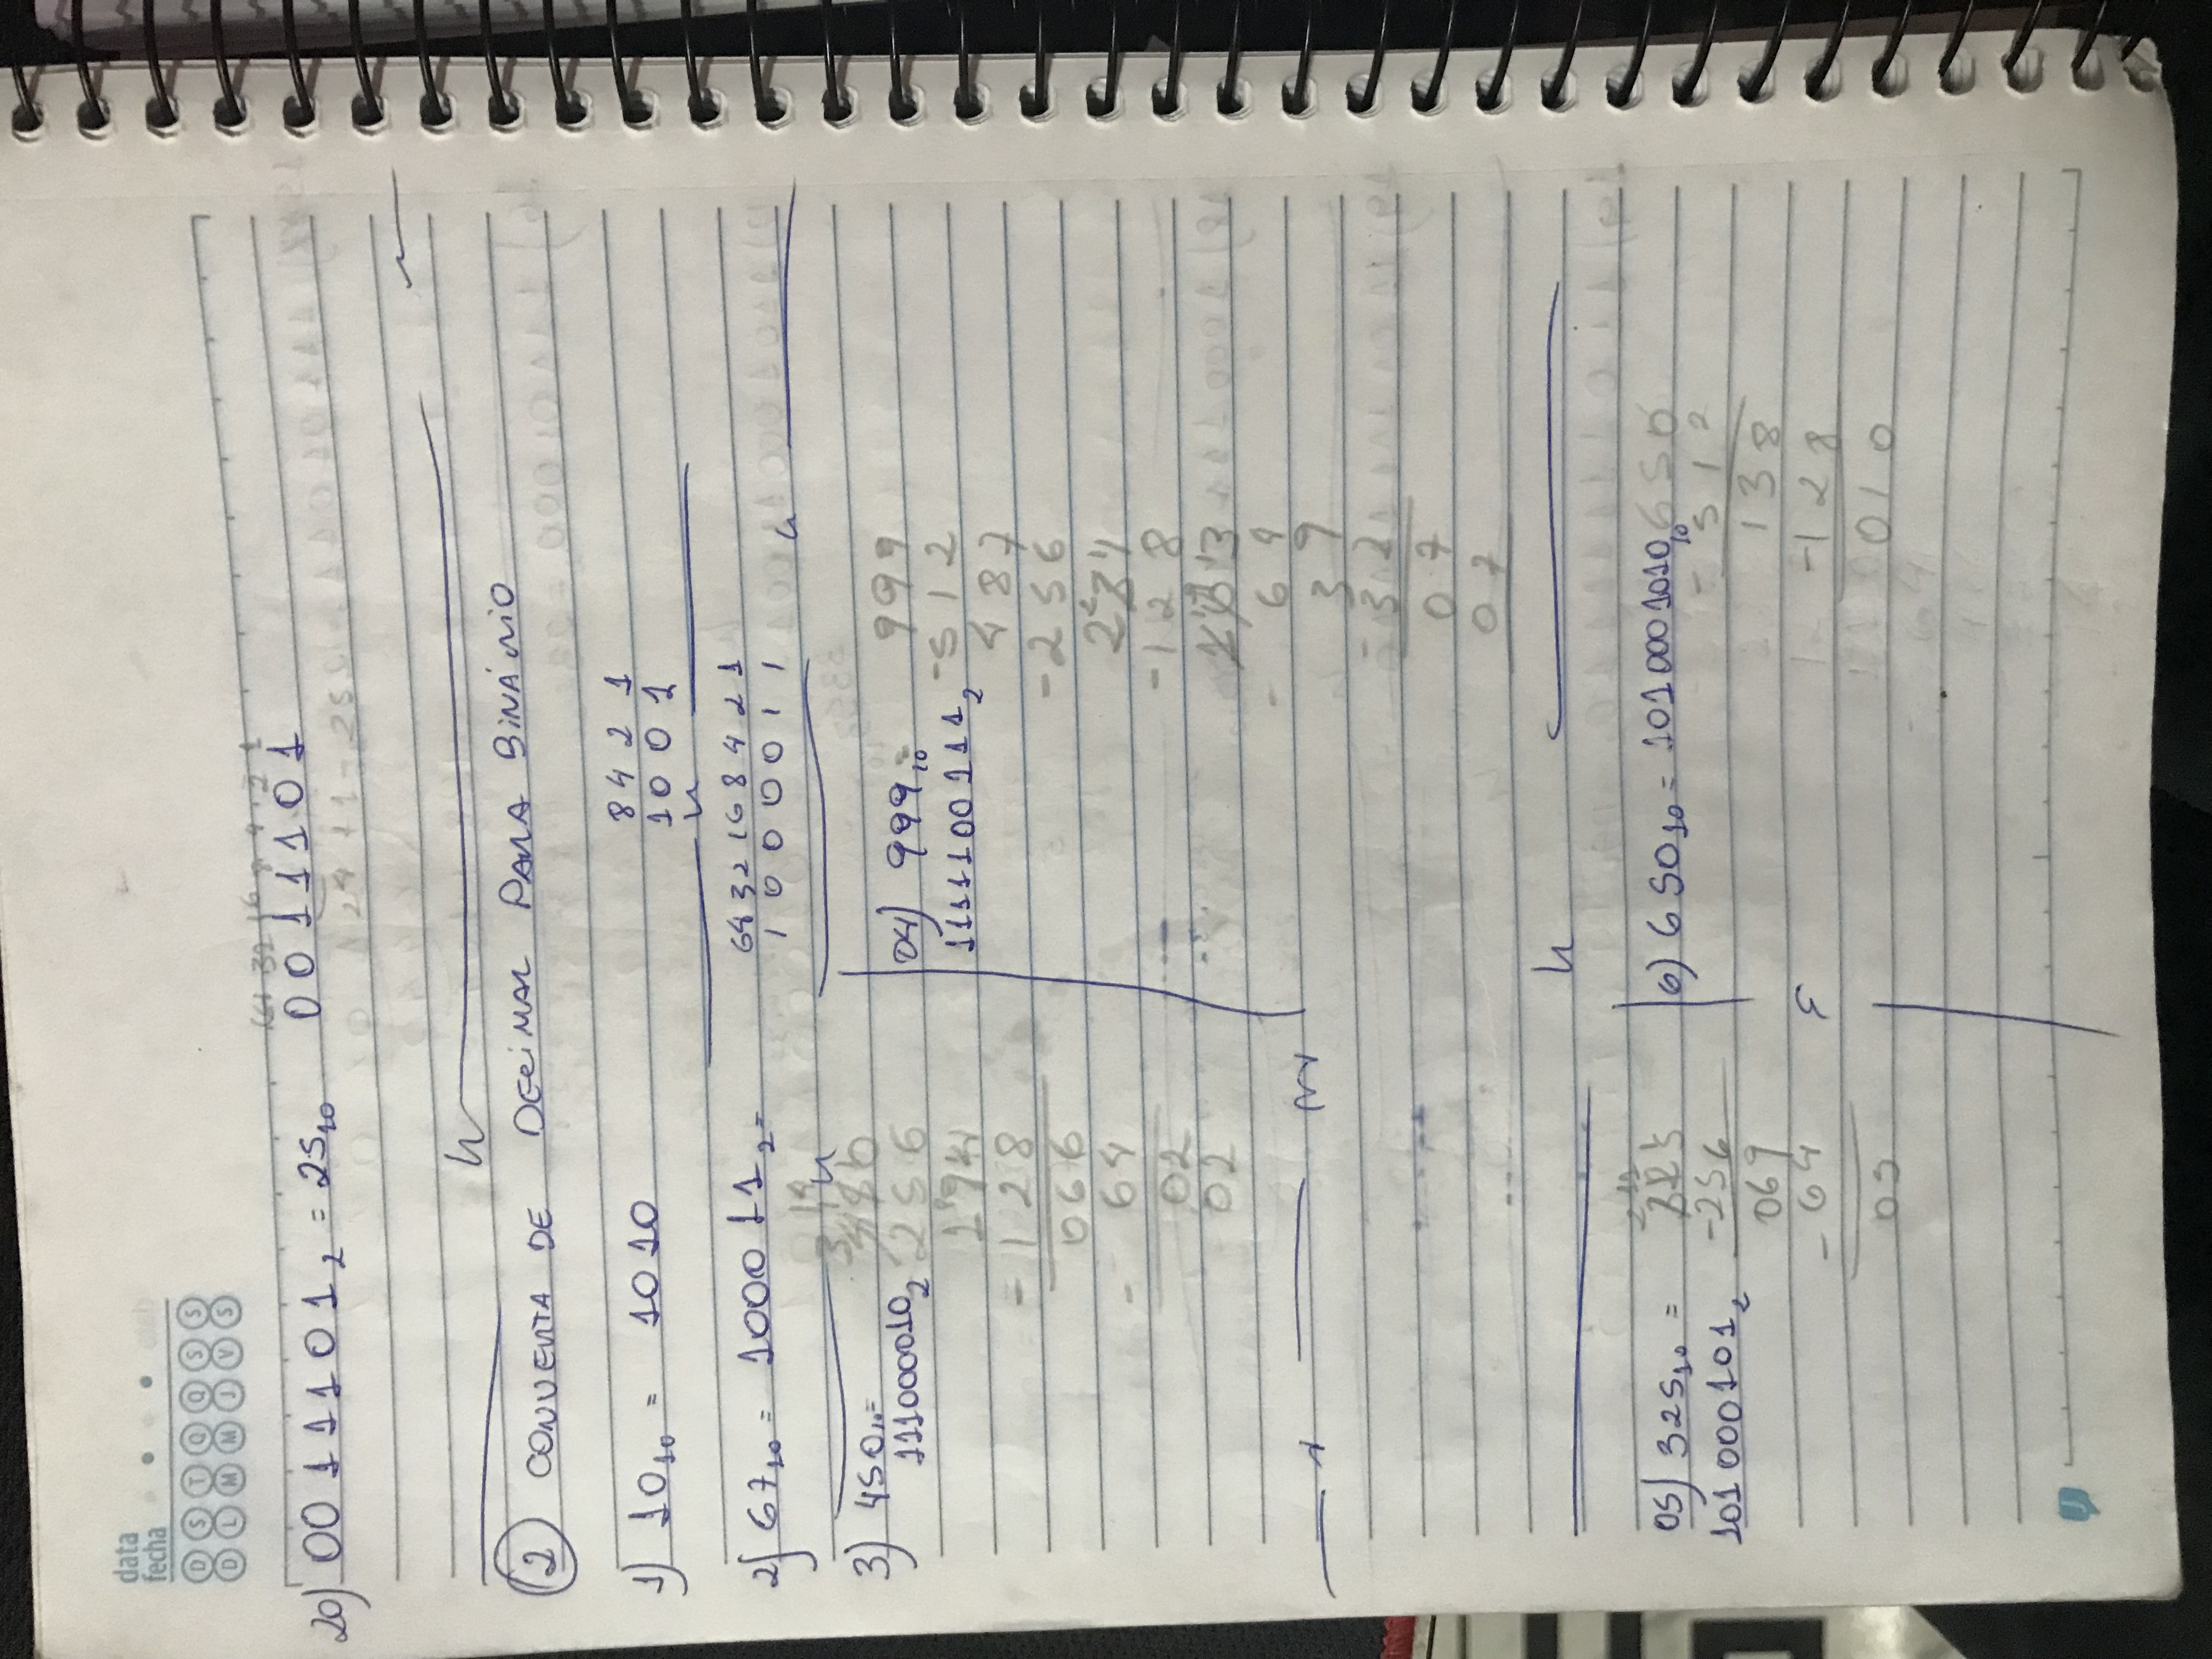 data
fecha
D S T Q Q S S
D L M M J V S
64 32 16 8 4 2 1
20) 0011101₂ = 25₁₀ 0011101
24 + 1 = 25
2 CONVERTA DE DECIMAL PARA BINÁRIO
8 4 2 1
1) 10₁₀ = 1010 1 0 0 1
64 32 16 8 4 2 1
2) 67₁₀ = 1000011₂ = 1 0 0 0 0 1 1
3) 450₁₀ =
111000010₂
256
194
- 128
066
- 64
02
02
04) 999₁₀ = 999
1111100111₂ - 512
487
- 256
231
- 128
103
- 64
39
- 32
07
07
05) 325₁₀ = 325
101000101₂ - 256
069
- 64
05
6) 650₁₀ = 1010001010₁₀ 650
- 512
138
- 128
010